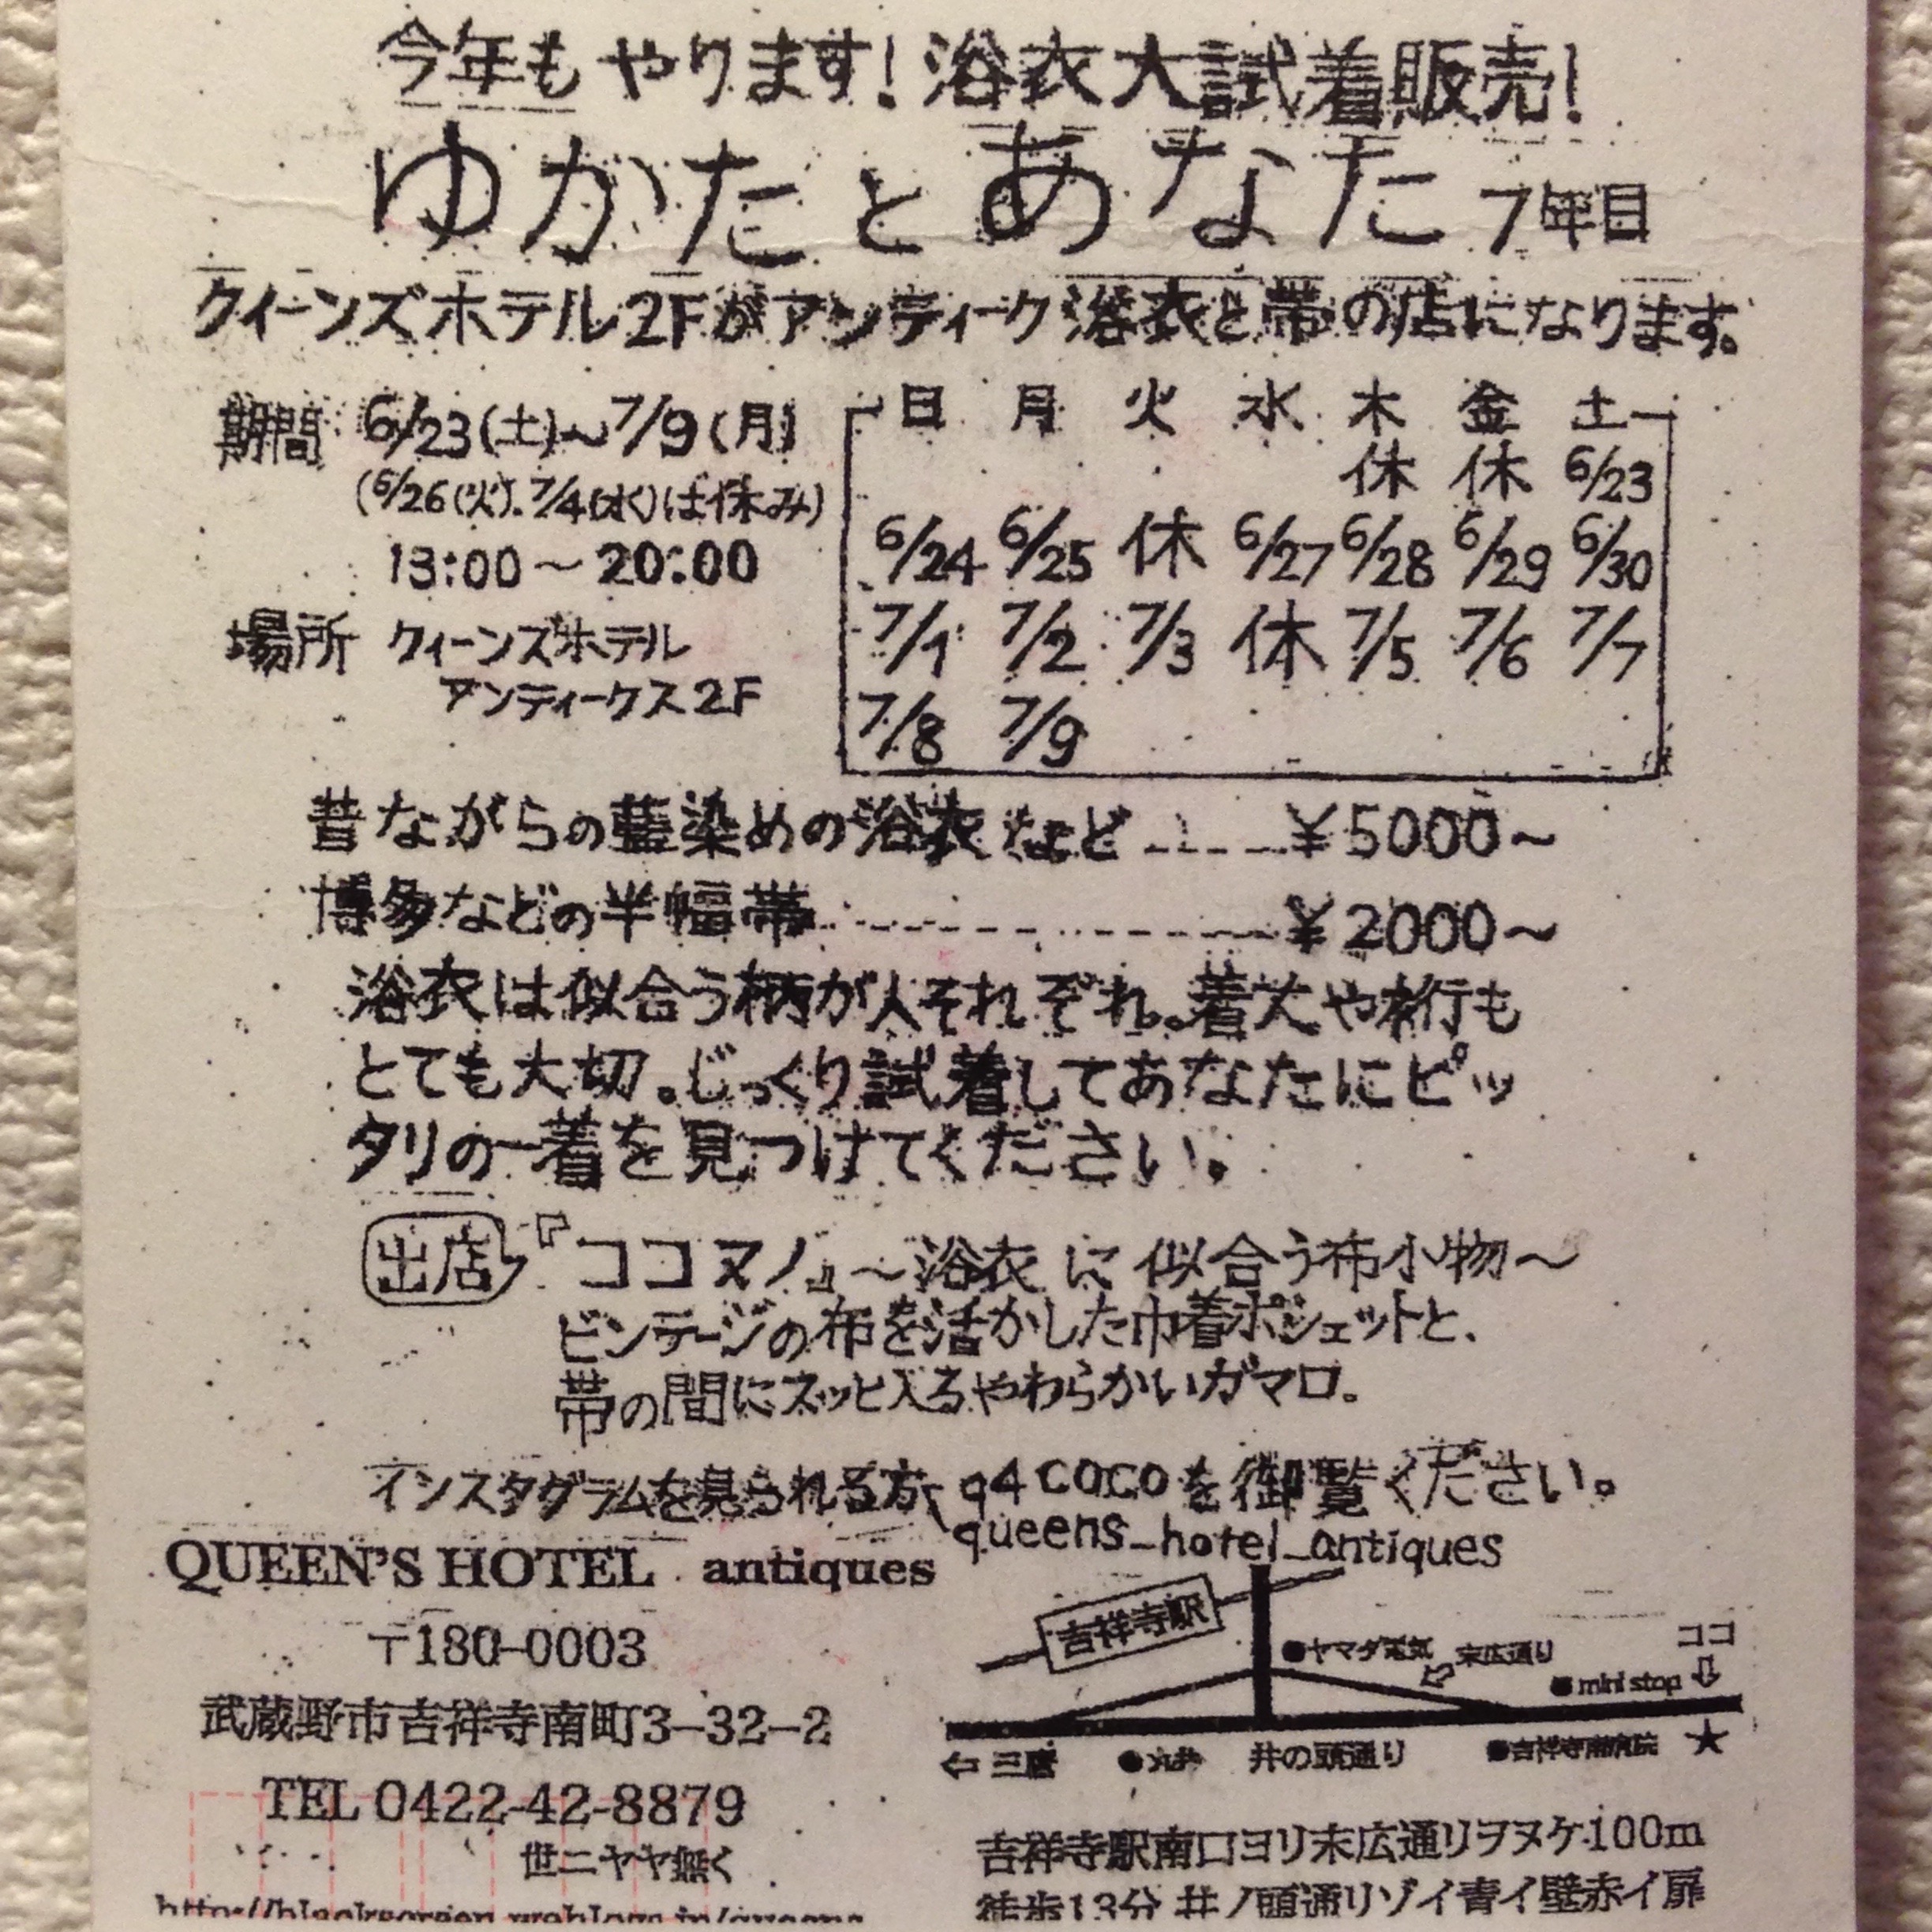 今年もやります!浴衣大試着販売!
ゆかたとあなた 7年目
クィーンズホテル2Fがアンティーク浴衣と帯の店になります。
期間 6/23(土)～7/9(月)
(6/26(火).7/4(水)は休み)
13:00～20:00
場所 クィーンズホテル
アンティークス2F
日 月 火 水 木 金 土
休 休 6/23
6/24 6/25 休 6/27 6/28 6/29 6/30
7/1 7/2 7/3 休 7/5 7/6 7/7
7/8 7/9
昔ながらの藍染めの浴衣など ------ ¥5000～
博多などの半幅帯 ------------ ¥2000～
浴衣は似合う柄が人それぞれ。着丈や裄も
とても大切。じっくり試着してあなたにピッ
タリの一着を見つけてください。
出店 『ココヌノ』～浴衣に似合う布小物～
ビンテージの布を活かした巾着ポシェットと、
帯の間にスッと入るやわらかいガマ口。
インスタグラムを見られる方、q4cocoを御覧ください。
queens_hotel_antiques
QUEEN'S HOTEL antiques
〒180-0003
武蔵野市吉祥寺南町3-32-2
TEL 0422-42-8879
世ニヤヤ無く
吉祥寺駅
●ヤマダ電気
末広通り
ココ
●mini stop
← 三鷹 ●丸井 井の頭通り ●吉祥寺南病院 ★
吉祥寺駅南口ヨリ末広通リヲヌケ100m
徒歩13分 井ノ頭通リゾイ青イ壁赤イ扉